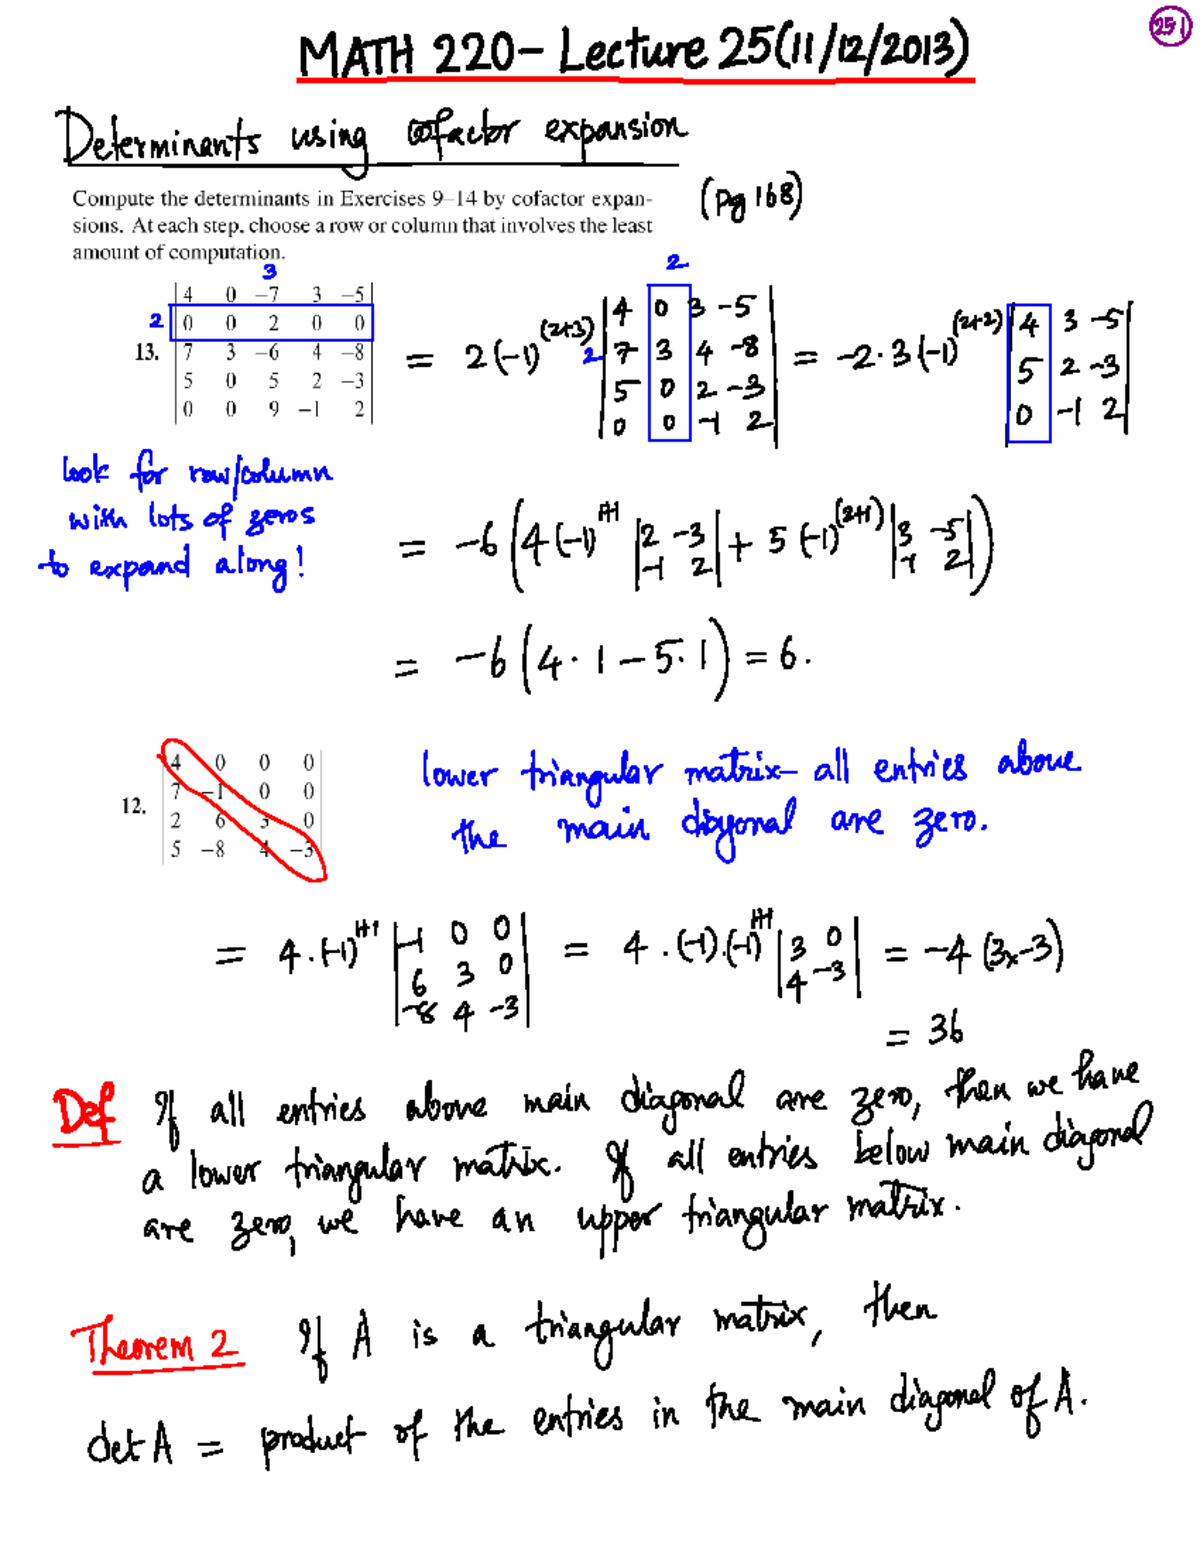 25-1
MATH 220 - Lecture 25 (11/12/2013)
Determinants using cofactor expansion
Compute the determinants in Exercises 9–14 by cofactor expan-
sions. At each step, choose a row or column that involves the least
amount of computation.
(pg 168)
3
2
13. |4 0 −7 3 −5|
|0 0 2 0 0|
|7 3 −6 4 −8|
|5 0 5 2 −3|
|0 0 9 −1 2|
2
2
= 2(-1)^(2+3) |4 0 3 -5|
|7 3 4 -8|
|5 0 2 -3|
|0 0 -1 2|
= -2·3(-1)^(2+2) |4 3 -5|
|5 2 -3|
|0 -1 2|
look for row/column
with lots of zeros
to expand along!
= -6(4(-1)^1+1 |2 -3; -1 2| + 5(-1)^(2+1) |3 -5; -1 2|)
= -6(4·1 - 5·1) = 6.
12. |4 0 0 0|
|7 −1 0 0|
|2 6 3 0|
|5 −8 4 −3|
lower triangular matrix - all entries above
the main diagonal are zero.
= 4·(-1)^1+1 |-1 0 0; 6 3 0; -8 4 -3| = 4·(-1)·(-1)^1+1 |3 0; 4 -3| = -4(3x-3)
= 36
Def If all entries above main diagonal are zero, then we have
a lower triangular matrix. If all entries below main diagonal
are zero, we have an upper triangular matrix.
Theorem 2 If A is a triangular matrix, then
det A = product of the entries in the main diagonal of A.